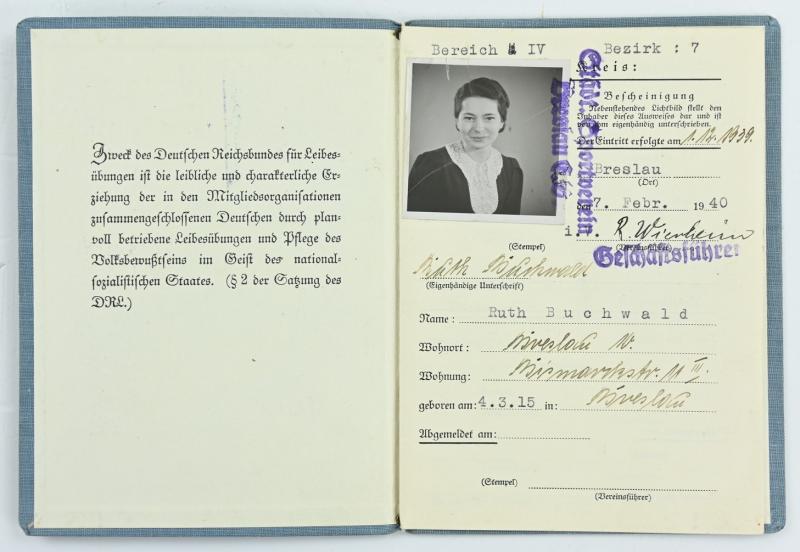 Zweck des Deutschen Reichsbundes für Leibes-
übungen ist die leibliche und charakterliche Er-
ziehung der in den Mitgliedsorganisationen
zusammengeschlossenen Deutschen durch plan-
voll betriebene Leibesübungen und Pflege des
Volksbewußtseins im Geist des national-
sozialistischen Staates. (§ 2 der Satzung des
DRL.)
Bereich IV Bezirk : 7
Kreis:
Bescheinigung
Nebenstehendes Lichtbild stellt den
Inhaber dieses Ausweises dar und ist
von ihm eigenhändig unterschrieben.
Der Eintritt erfolgte am 1.12.1939.
Breslau
(Ort)
den 7. Febr. 1940
(Stempel)
Geschäftsführer
Ruth Buchwald
(Eigenhändige Unterschrift)
Name : Ruth Buchwald
Wohnort : Breslau
Wohnung: Bismarckstr. 11 III.
geboren am: 4.3.15 in: Breslau
Abgemeldet am:
(Stempel)
(Vereinsführer)